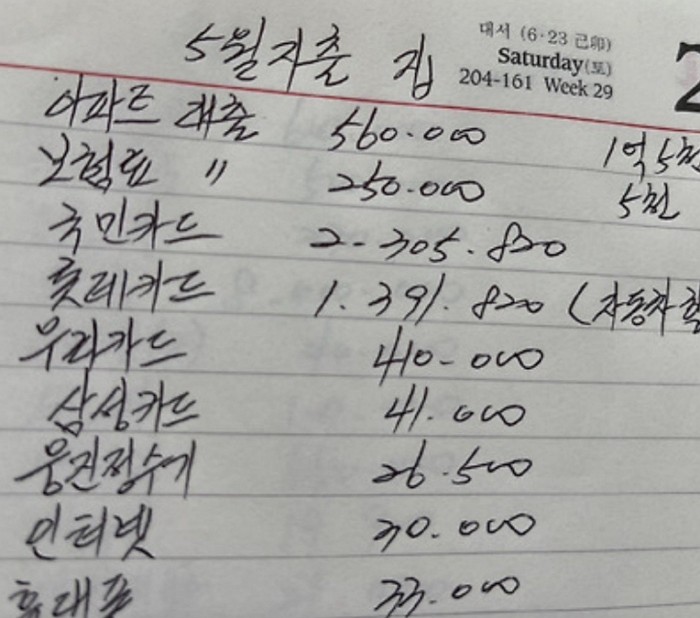 5월지출 집
대서 (6·23 己卯)
Saturday(토)
204-161 Week 29
2
아파트 대출 560.000 1억5천
보험료 〃 250.000 5천
국민카드 2-305.820
롯데카드 1.391.820 (자동차
우리카드 410-000
삼성카드 41.000
웅진정수기 26.500
인터넷 30.000
휴대폰 33.000